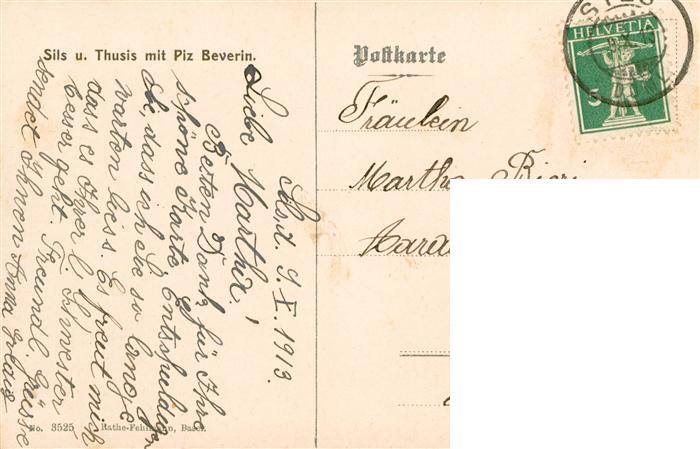 Sils u. Thusis mit Piz Beverin.
Postkarte
HELVETIA
5
Fräulein
Martha
9. X. 1913.
Liebe Martha!
Besten Dank für Ihre
schöne Karte. Entschuldigen
Sie, dass ich Sie so lange
warten liess. Es freut mich
dass es Ihrer l. Schwester
besser geht. Freundl. Grüsse
sendet Ihnen Anna
No. 3525 Rathe-Fehlmann, Basel.